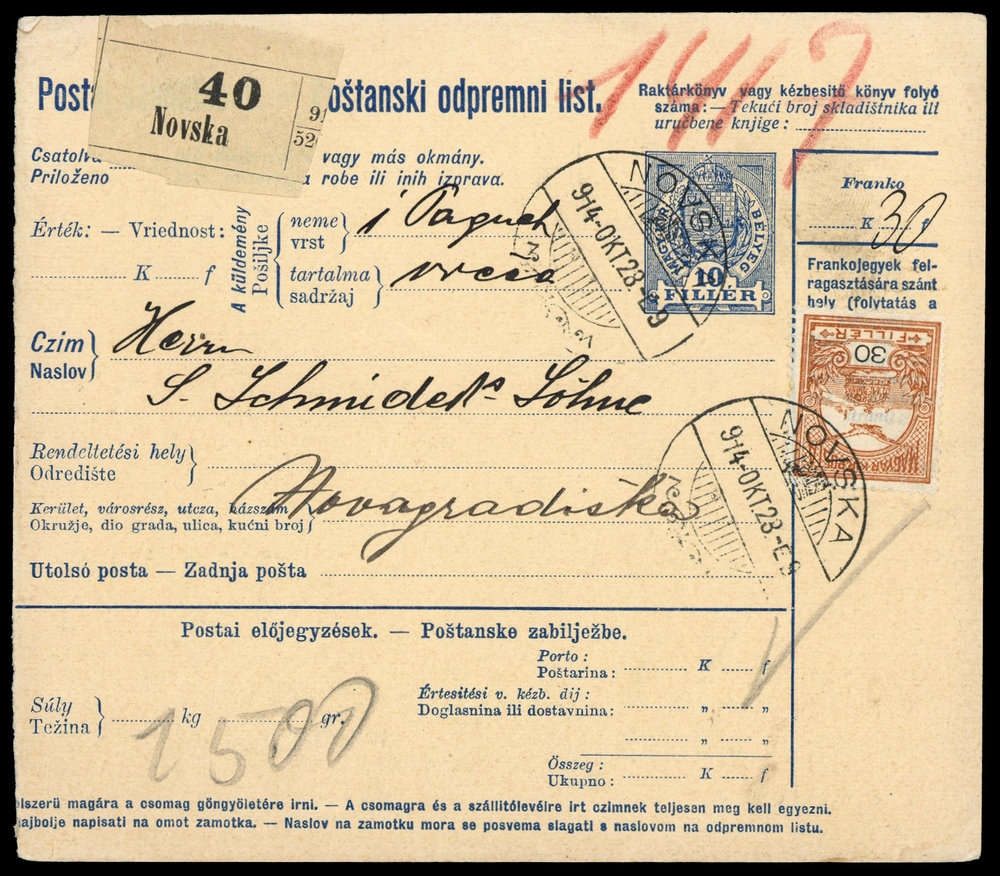 1417
40
Novska
91
52
Post
oštanski odpremni list.
Raktárkönyv vagy kézbesitő könyv folyó
száma: — Tekući broj skladištnika ili
uručbene knjige:
Csatolva
vagy más okmány.
Priloženo
a robe ili inih izprava.
Érték: — Vriednost:
K f
A küldemény
Pošiljke
neme
vrst
1
tartalma
sadržaj
vreća
MAGYAR BELYEG
10
FILLÉR
NOVSKA
914-OKT.23.-E9
Franko
K 30 f
Frankojegyek fel-
ragasztására szánt
hely (folytatás a
FILLÉR
30
MAGYAR
Czim
Naslov
Herrn
S. Schmidek's Söhne
Rendeltetési hely
Odredište
Novagradiska
Kerület, városrész, utcza, házszám
Okružje, dio grada, ulica, kućni broj
NOVSKA
914-OKT.23.-E9
Utolsó posta — Zadnja pošta
Postai előjegyzések. — Poštanske zabilježbe.
Porto:
Poštarina: K f
Értesitési v. kézb. dij:
Doglasnina ili dostavnina: „ „
„ „
Összeg:
Ukupno: K f
Súly
Težina
kg gr.
1500
elszerü magára a csomag göngyöletére irni. — A csomagra és a szállitólevélre irt czimnek teljesen meg kell egyezni.
najbolje napisati na omot zamotka. — Naslov na zamotku mora se posvema slagati s naslovom na odpremnom listu.